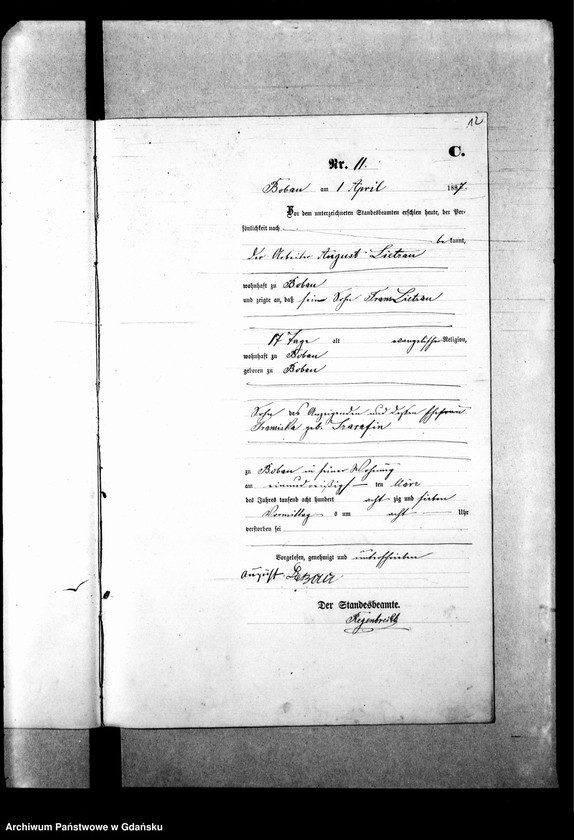 12
C.
Nr. 11.
Boban am 1 April 1887.
Vor dem unterzeichneten Standesbeamten erschien heute, der Per-
sönlichkeit nach
bekannt,
der Arbeiter August Lietzau
wohnhaft zu Boban
und zeigte an, daß sein Sohn Franz Lietzau
17 Tage alt evangelischer Religion,
wohnhaft zu Boban
geboren zu Boban
Sohn des Anzeigenden und dessen Ehefrau
Franziska geb.
zu Boban in seiner Wohnung
am einunddreißigsten März
des Jahres tausend acht hundert acht zig und sieben
Vormittags um acht Uhr
verstorben sei
Vorgelesen, genehmigt und unterschrieben
August
Der Standesbeamte.
Archiwum Państwowe w Gdańsku